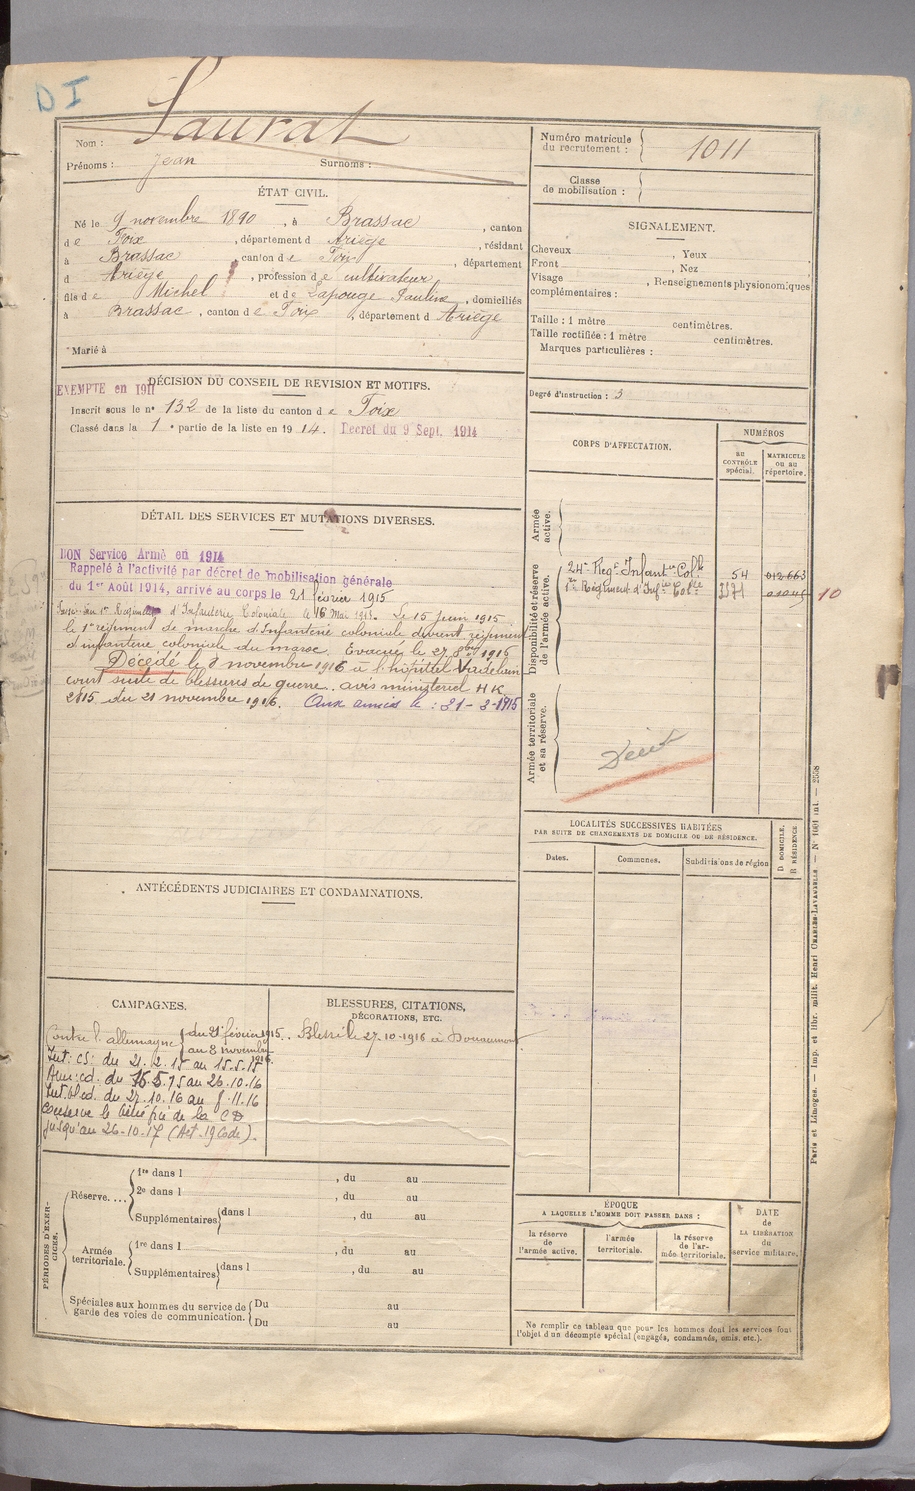 D I
Nom : Saurat
Prénoms : Jean Surnoms :
Numéro matricule du recrutement : 1011
Classe de mobilisation :
ÉTAT CIVIL.
Né le 9 novembre 1890, à Brassac, canton
de Foix, département d Ariège, résidant
à Brassac, canton de Foix, département
d Ariège, profession de cultivateur
fils de Michel et de Lapouge Pauline, domiciliés
à Brassac, canton de Foix, département d Ariège
Marié à
SIGNALEMENT.
Cheveux , Yeux
Front , Nez
Visage , Renseignements physionomiques
complémentaires :
Taille : 1 mètre centimètres.
Taille rectifiée : 1 mètre centimètres.
Marques particulières :
Degré d'instruction : 3
DÉCISION DU CONSEIL DE REVISION ET MOTIFS.
EXEMPTE en 1911
Inscrit sous le n° 132 de la liste du canton de Foix
Classé dans la 1e partie de la liste en 1914. Decret du 9 Sept. 1914
DÉTAIL DES SERVICES ET MUTATIONS DIVERSES.
BON Service Armé en 1914
Rappelé à l'activité par décret de mobilisation générale
du 1er Août 1914, arrivé au corps le 21 février 1915
1er Régiment d'Infanterie Coloniale le 16 Mai 1915. Le 15 Juin 1915
le 1er régiment de marche d'Infanterie coloniale devient régiment
d'infanterie coloniale du maroc. Evacué le 27 8bre 1916
Décédé le 8 novembre 1916 à l'hôpital Vadelain
court suite de blessures de guerre. avis ministeriel HK
2815 du 21 novembre 1916. Aux armées le : 21-2-1915
CORPS D'AFFECTATION.
NUMÉROS
au CONTRÔLE spécial.
MATRICULE ou au répertoire.
Armée active.
Disponibilité et réserve de l'armée active.
24e Regt Infantie Colle 54 012663
1er Régiment d'Infie Colle 01045 10
Armée territoriale et sa réserve.
Décédé
LOCALITÉS SUCCESSIVES HABITÉES
PAR SUITE DE CHANGEMENTS DE DOMICILE OU DE RÉSIDENCE.
Dates. Communes. Subdivisions de région
D DOMICILE. R RÉSIDENCE
ANTÉCÉDENTS JUDICIAIRES ET CONDAMNATIONS.
CAMPAGNES.
Contre l'allemagne du 21 février 1915
au 8 novembre 1916.
Int : CS: du 21.2.15 au 15.5.15
Aux : cd. du 16.5.15 au 26.10.16
Int. bl cd. du 27.10.16 au 8.11.16
conserve le bénéfice de la CD
jusqu'au 26-10-17 (Act. 19 Code).
BLESSURES, CITATIONS,
DÉCORATIONS, ETC.
Blessé le 27.10.1916 à Douaumont
PÉRIODES D'EXERCICES.
Réserve....
1re dans l , du au
2e dans l , du au
Supplémentaires dans l , du au
Armée territoriale.
1re dans l , du au
Supplémentaires dans l , du au
Spéciales aux hommes du service de
garde des voies de communication.
Du au
Du au
ÉPOQUE
A LAQUELLE L'HOMME DOIT PASSER DANS :
la réserve de l'armée active.
l'armée territoriale.
la réserve de l'armée territoriale.
DATE de LA LIBÉRATION du service militaire.
Ne remplir ce tableau que pour les hommes dont les services font
l'objet d'un décompte spécial (engagés, condamnés, omis, etc.).
Paris et Limoges. — Imp. et libr. milit. Henri CHARLES-LAVAUZELLE. — N° 1601 int. — 2558